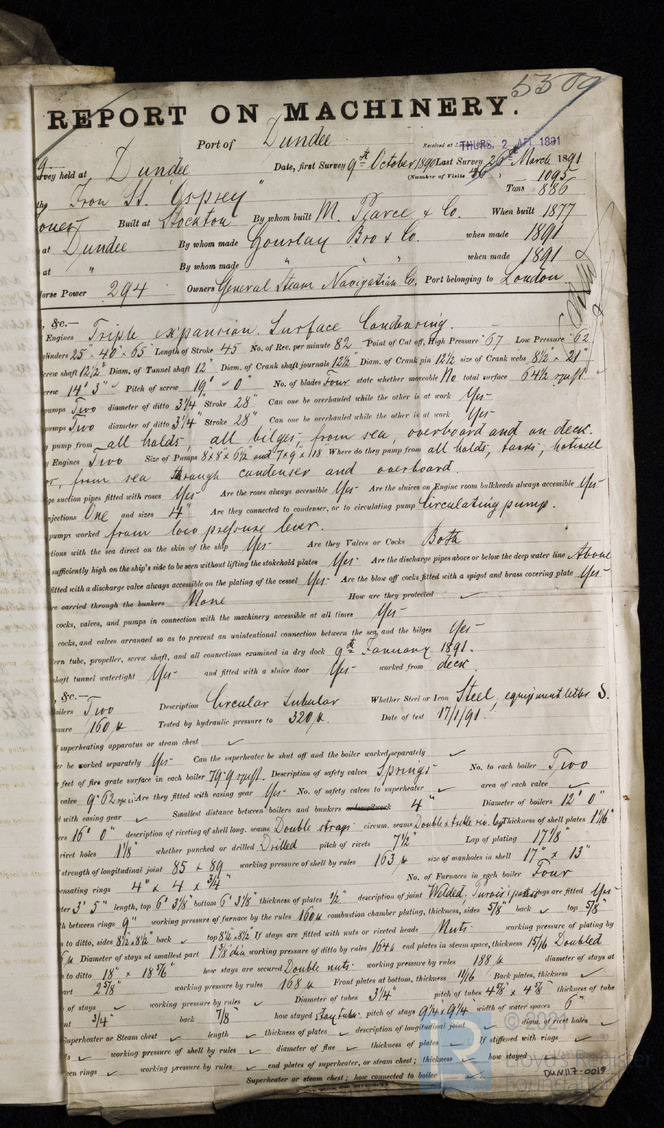 5309
REPORT ON MACHINERY.
Port of Dundee
Received at THURS. 2 APL 1891
Survey held at Dundee Date, first Survey 9th October 1890 Last Survey 26th March 1891
(Number of Visits 46)
Iron Ss. "Osprey" Tons 1095 886
Built at Stockton By whom built M. Pearce & Co. When built 1877
at Dundee By whom made Gourlay Bro & Co. when made 1891
at " By whom made " " when made 1891
Horse Power 294 Owners General Steam Navigation Co. Port belonging to London
, &c.—
Engines Triple expansion. Surface Condensing.
cylinders 25" 40" & 65" Length of Stroke 45 No. of Rev. per minute 82 Point of Cut off, High Pressure .67 Low Pressure .62
screw shaft 12½" Diam. of Tunnel shaft 12" Diam. of Crank shaft journals 12½" Diam. of Crank pin 12½ size of Crank webs 8½ × 21"
screw 14' 3" Pitch of screw 19' 0" No. of blades Four state whether moveable No total surface 64½ sq ft
pumps Two diameter of ditto 3¼" Stroke 28" Can one be overhauled while the other is at work Yes
pumps Two diameter of ditto 3¼" Stroke 28" Can one be overhauled while the other is at work Yes
y pump from all holds, all bilges, from sea, overboard and on deck.
Engines Two Size of Pumps 8×8×6½ and 7×9×108 Where do they pump from all holds, tanks, hotwell
or, from sea through condenser and overboard.
ge suction pipes fitted with roses Yes Are the roses always accessible Yes Are the sluices on Engine room bulkheads always accessible Yes
njections One and sizes 4" Are they connected to condenser, or to circulating pump Circulating pump.
pumps worked from low pressure lever.
ctions with the sea direct on the skin of the ship Yes Are they Valves or Cocks Both
sufficiently high on the ship's side to be seen without lifting the stokehold plates Yes Are the discharge pipes above or below the deep water line Above
fitted with a discharge valve always accessible on the plating of the vessel Yes Are the blow off cocks fitted with a spigot and brass covering plate Yes
re carried through the bunkers None How are they protected
cocks, valves, and pumps in connection with the machinery accessible at all times Yes
cocks, and valves arranged so as to prevent an unintentional connection between the sea and the bilges Yes
ern tube, propeller, screw shaft, and all connections examined in dry dock 9th January 1891.
shaft tunnel watertight Yes and fitted with a sluice door Yes worked from deck
, &c.—
boilers Two Description Circular tubular Whether Steel or Iron Steel, equipment letter S.
sure 160 lb Tested by hydraulic pressure to 320 lb Date of test 17/1/91.
superheating apparatus or steam chest
er be worked separately Yes Can the superheater be shut off and the boiler worked separately
feet of fire grate surface in each boiler 79.9 sq ft. Description of safety valves Springs No. to each boiler Two
valve 9.62 sq in Are they fitted with easing gear Yes No. of safety valves to superheater area of each valve
d with easing gear Smallest distance between boilers and bunkers 4" Diameter of boilers 12' 0"
ers 16' 0" description of riveting of shell long. seams Double straps circum. seams Thickness of shell plates 1 1/16
rivet holes 1 1/8" whether punched or drilled Drilled pitch of rivets 7½" Lap of plating 17 1/8"
strength of longitudinal joint 85 & 89 working pressure of shell by rules 163 lb size of manholes in shell 17" × 13"
ensating rings 4" × 4 × ¾" No. of Furnaces in each boiler Four
ter 3' 5" length, top 6' 3 1/8" bottom 6' 3 1/8" thickness of plates ½" description of joint Welded, are fitted Yes
th between rings 9" working pressure of furnace by the rules 160 lb combustion chamber plating, thickness, sides 5/8" back top 5/8"
s to ditto, sides 8½×8½" back top 8½×8½" If stays are fitted with nuts or riveted heads Nuts working pressure of plating by
Diameter of stays at smallest part 1 3/8 dia working pressure of ditto by rules 164 lb end plates in steam space, thickness 15/16 Doubled
to ditto 18" × 18 5/16" how stays are secured Double nuts working pressure by rules 188 lb diameter of stays at
art 2 5/8" working pressure by rules 168 lb Front plates at bottom, thickness 11/16 Back plates, thickness
of stays working pressure by rules Diameter of tubes 3¼" pitch of tubes 4 5/8" × 4 5/8" thickness of tube
nt ¾" back 7/8 how stayed Stay tubes pitch of stays 9¼ × 9¼" width of water spaces 6"
Superheater or Steam chest length thickness of plates description of longitudinal joint diam. of rivet holes
ts working pressure of shell by rules diameter of flue thickness of plates If stiffened with rings
een rings working pressure by rules end plates of superheater, or steam chest; thickness how stayed
Superheater or steam chest; how connected to boiler
© 2021
Lloyd's Register
Foundation
DUN117-0019